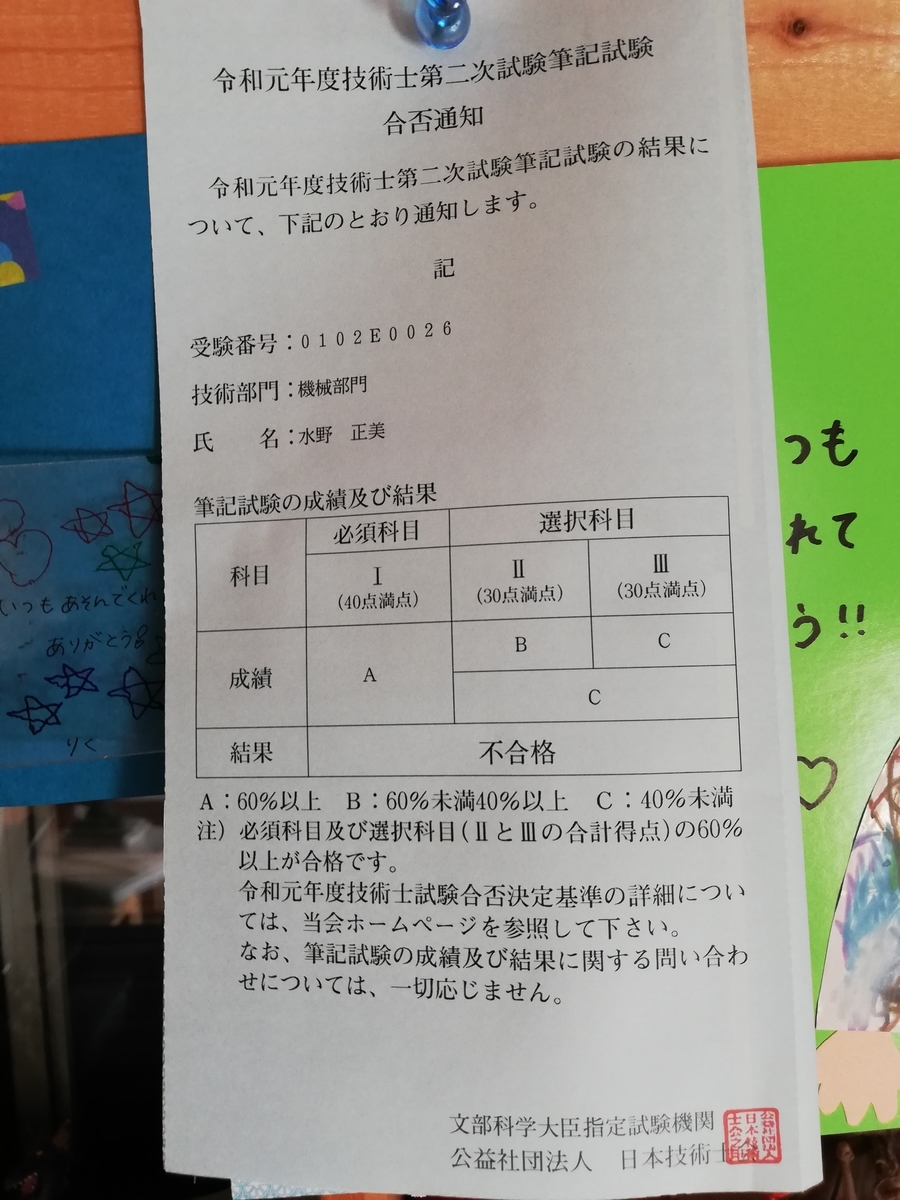 令和元年度技術士第二次試験筆記試験
合否通知
令和元年度技術士第二次試験筆記試験の結果に
ついて、下記のとおり通知します。
記
受験番号：0102E0026
技術部門：機械部門
氏　　名：水野　正美
筆記試験の成績及び結果
科目
必須科目
選択科目
Ⅰ
(40点満点)
Ⅱ
(30点満点)
Ⅲ
(30点満点)
成績
A
B
C
C
結果
不合格
A：60%以上　B：60%未満40%以上　C：40%未満
注）必須科目及び選択科目(ⅡとⅢの合計得点)の60%
以上が合格です。
令和元年度技術士試験合否決定基準の詳細につい
ては、当会ホームページを参照して下さい。
なお、筆記試験の成績及び結果に関する問い合わ
せについては、一切応じません。
文部科学大臣指定試験機関
公益社団法人　日本技術士
いつもあそんでくれ
ありがとう
りく
つも
れて
う!!